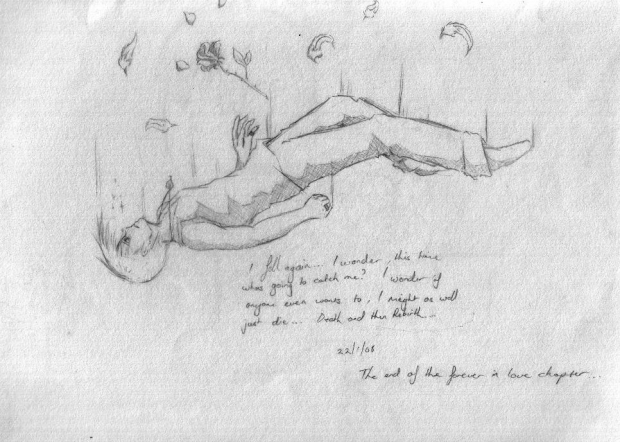 I fall again... I wonder, this time
whos going to catch me? I wonder if
anyone even wants to, I might as well
just die... Death and then Rebirth...
22/1/08
The end of the forever in love chapter...